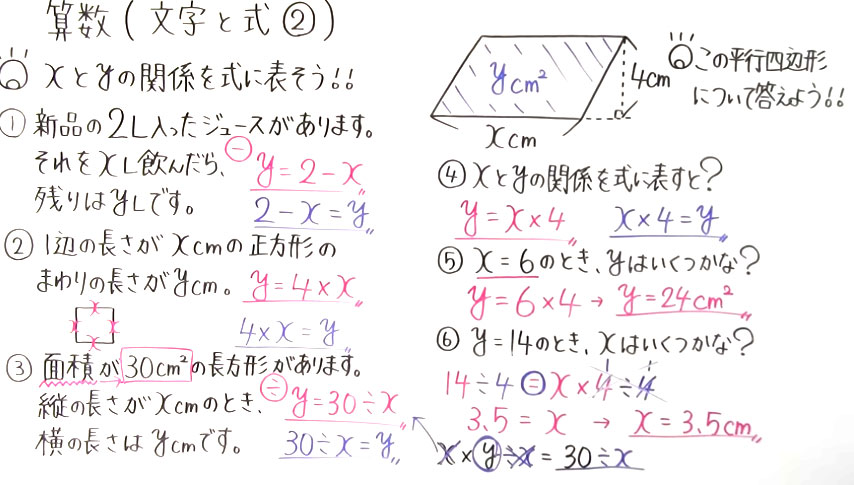 算数(文字と式②)
xとyの関係を式に表そう!!
① 新品の2L入ったジュースがあります。
それをxL飲んだら、
残りはyLです。
⊖ y=2-x
2-x=y
② 1辺の長さがxcmの正方形の
まわりの長さがycm。
y=4×x
4×x=y
③ 面積が30cm²の長方形があります。
縦の長さがxcmのとき、
横の長さはycmです。
÷ y=30÷x
30÷x=y
ycm²
4cm
xcm
この平行四辺形
について答えよう!!
④ xとyの関係を式に表すと?
y=x×4 x×4=y
⑤ x=6のとき、yはいくつかな?
y=6×4→y=24cm²
⑥ y=14のとき、xはいくつかな?
1 1
14÷4=x×4÷4
3.5=x → x=3.5cm
x×y÷x=30÷x